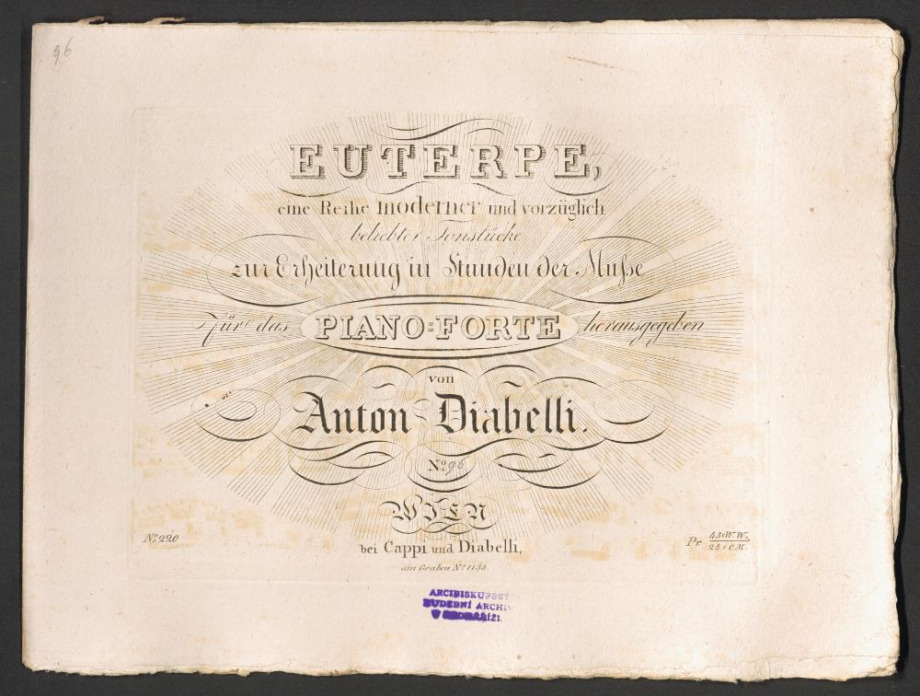 96
EUTERPE,
eine Reihe moderner und vorzüglich
beliebter Tonstücke
zur Erheiterung in Stunden der Muſse
Für das PIANO=FORTE herausgegeben
von
Anton Diabelli.
No. 96
WIEN
No. 220
bei Cappi und Diabelli,
Pr. 45 x W.W.
am Graben No. 1133
ARCIBISKUPSKÝ
HUDEBNÍ ARCHIV